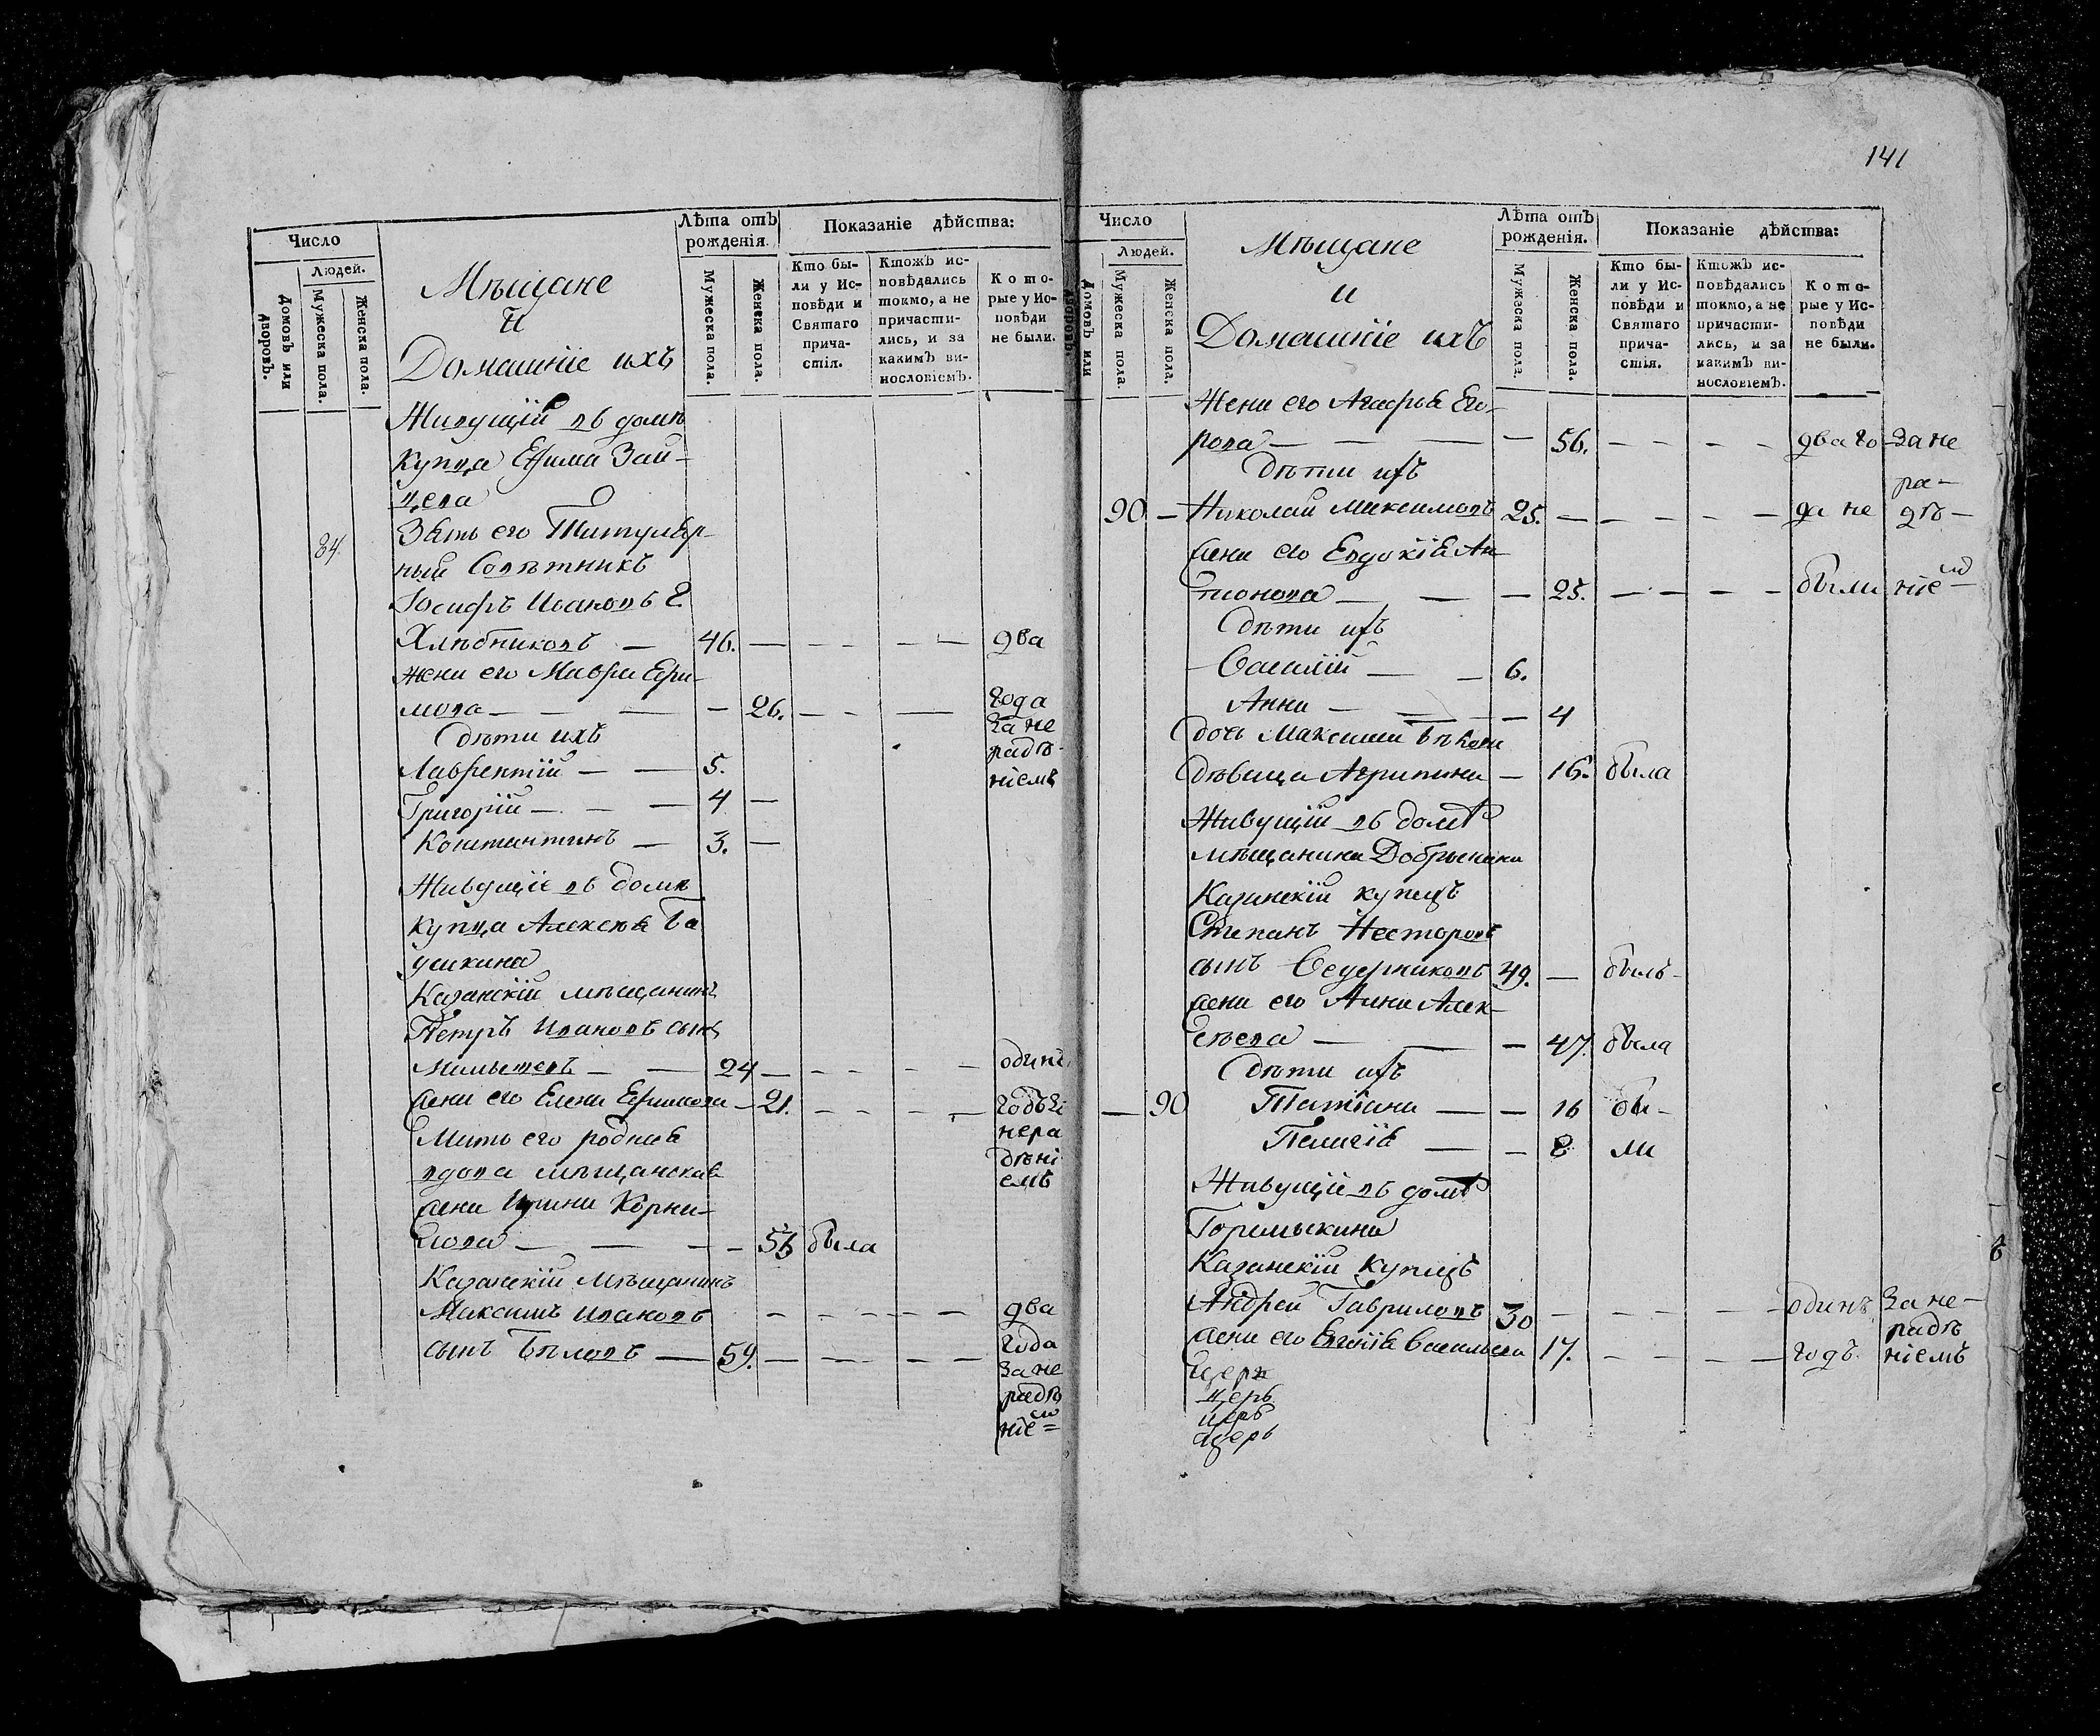 Число
Людей.
Домовъ или дворовъ.
Мужеска пола.
Женска пола.
Мѣщане
и
Домашніе ихъ
Лѣта отъ рожденія.
Мужеска пола.
Женска пола.
Показаніе дѣйства:
Кто бы-
ли у Ис-
повѣди и
Святаго
прича-
стія.
Ктожъ ис-
повѣдались
токмо, а не
причасти-
лись, и за
какимъ ви-
нословіемъ.
Кото-
рые у Ис-
повѣди
не были.
Живущій въ домѣ
купца Ефима Зай-
цева
84. Зять его Титуляр-
ный Совѣтникъ
Іосифъ Ивановъ С.
Хлѣбниковъ — 46. — — — — — два
жена его Мавра Ефи-
мова — — — — 26. — — — года
за не
радѣ-
ніемъ
Дѣти ихъ
Лаврентій — — 5.
Григорій — — — 4 —
Константинъ — 3. —
Живущіе въ домѣ
купца Алексея Ба
душкина
Казанскій мѣщанинъ
Петръ Ивановъ сынъ
Мамышевъ — — 24 — — — — — одинъ
жена его Елена Ефимова — 21. — — — — годъ за
нера
дѣні
емъ
Мать его родная
вдова мѣщанская
жена Ирина Корни-
лова — — — — 56 была
Казанскій Мѣщанинъ
Максимъ Ивановъ — — — — — два
сынъ Бѣловъ — 59. — — — — — года
за не
радѣ
ніе=
141
Число
Людей.
Домовъ или дворовъ.
Мужеска пола.
Женска пола.
Мѣщане
и
Домашніе ихъ
Лѣта отъ рожденія.
Мужеска пола.
Женска пола.
Показаніе дѣйства:
Кто бы-
ли у Ис-
повѣди и
Святаго
прича-
стія.
Ктожъ ис-
повѣдались
токмо, а не
причасти-
лись, и за
какимъ ви-
нословіемъ.
Кото-
рые у Ис-
повѣди
не были.
Жена его Агафья Его-
рова — — — — 56. — — — — два го- за не
Дѣти ихъ
ра-
90 — Николай Максимовъ 25. — — — — — да не дѣ-
жена его Евдокія Ан-
тонова — — — 25. — — — — были ніе-
Дѣти ихъ
Василій — — 6.
Анна — — — — 4
дочь Максима Бѣлова
дѣвица Агрипина — 16. была
Живущій въ домѣ
мѣщанина Добрынина
Казанскій купецъ
Степанъ Несторовъ
сынъ 49. — былъ-
жена его Анна Алек-
сѣева — — — 47. была
Дѣти ихъ
— 90 Татіана — — 16 бы-
Пелагія — — 8 ли
Живущіе въ домѣ
Горемыкина
Казанскій Купецъ
Андрей Гавриловъ 30 — — — — — одинъ за не-
радѣ
жена его Евгенія Васильева 17. — — — — годъ. ніемъ
церь